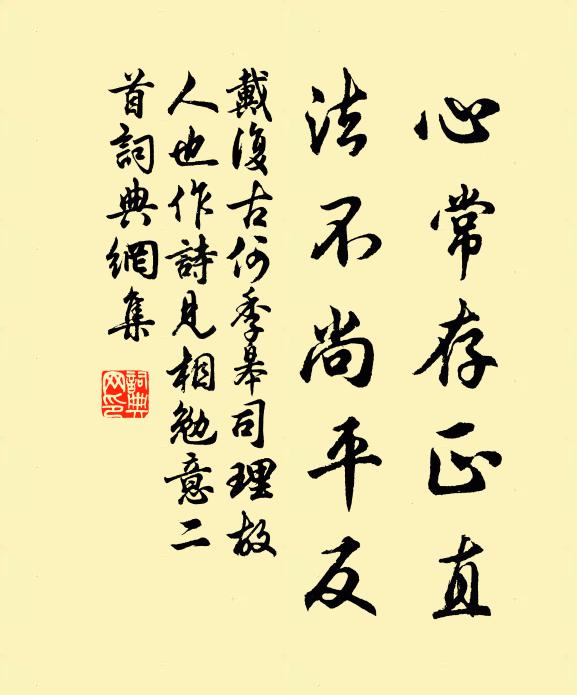 心常存正直
法不尚平反
戴復古何季皋司理故
人也作詩見相勉意二
首詞典網集
詞典
网印